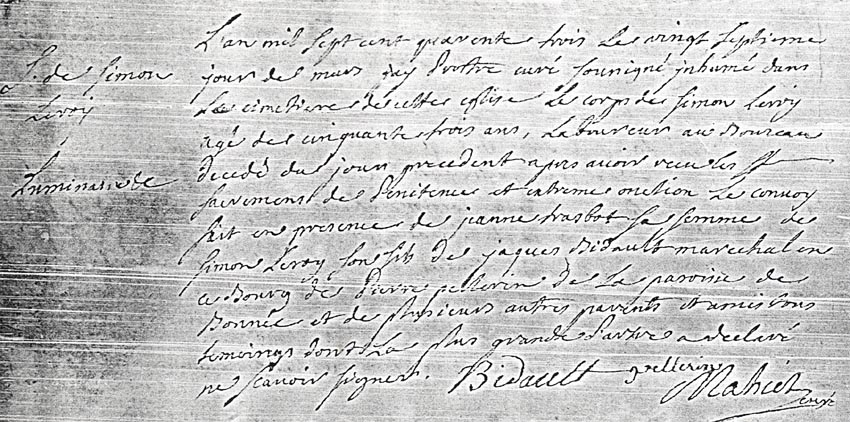 L'an mil sept cent quarente trois Le vingt septieme
S. de Simon
jour de mars jay Prestre curé sousigné inhumé dans
Leroy
Le cimetiere de cette Eglise Le corps de Simon Leroy
agé de cinquante trois ans, Laboureur au Boureau
Luminaire
decedé du jour precedent apres avoir receu les SS
sacremens de Penitence et extreme onction Le convoy
fait en presence de jeanne trasbot sa femme de
Simon Leroy son fils de jaques Bidault marechal en
ce Bourg de Pierre pellerin de La paroisse de
Bonnée et de plusieurs autres parents et amis tous
temoings dont La plus grande Partie a declaré
ne scavoir signer. Bidault pellerin
Mahiet
curé